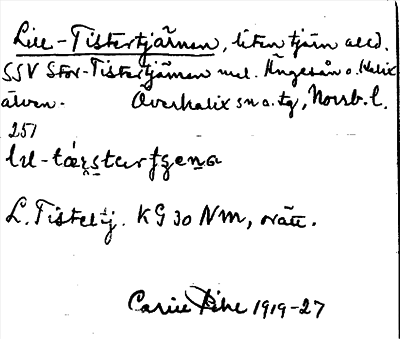 Lill-Tistertjärnen, liten tjärn alld.
SSV Stor-Tistertjärnen mel. Ängesån o. Kalix
älven. Överkalix sn o. tg, Norrb. l.
251
L. Tisteltj. KG 30 Nm, orätt.
Carin Pihl 1919-27